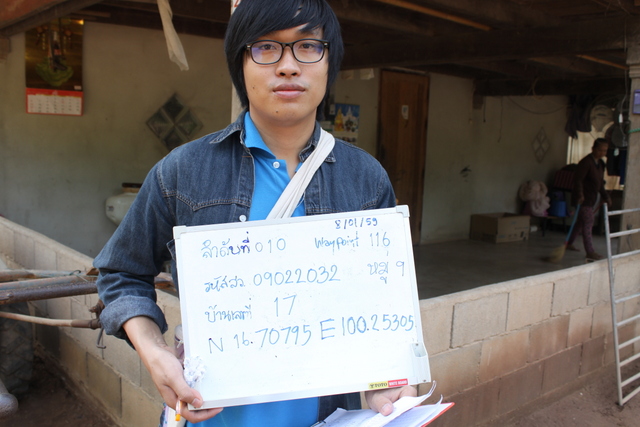 8/01/59
ลำดับที่ 010 waypoint 116
รหัสสว. 09022032 หมู่ 9
บ้านเลขที่ 17
N 16.70795 E 100.25305